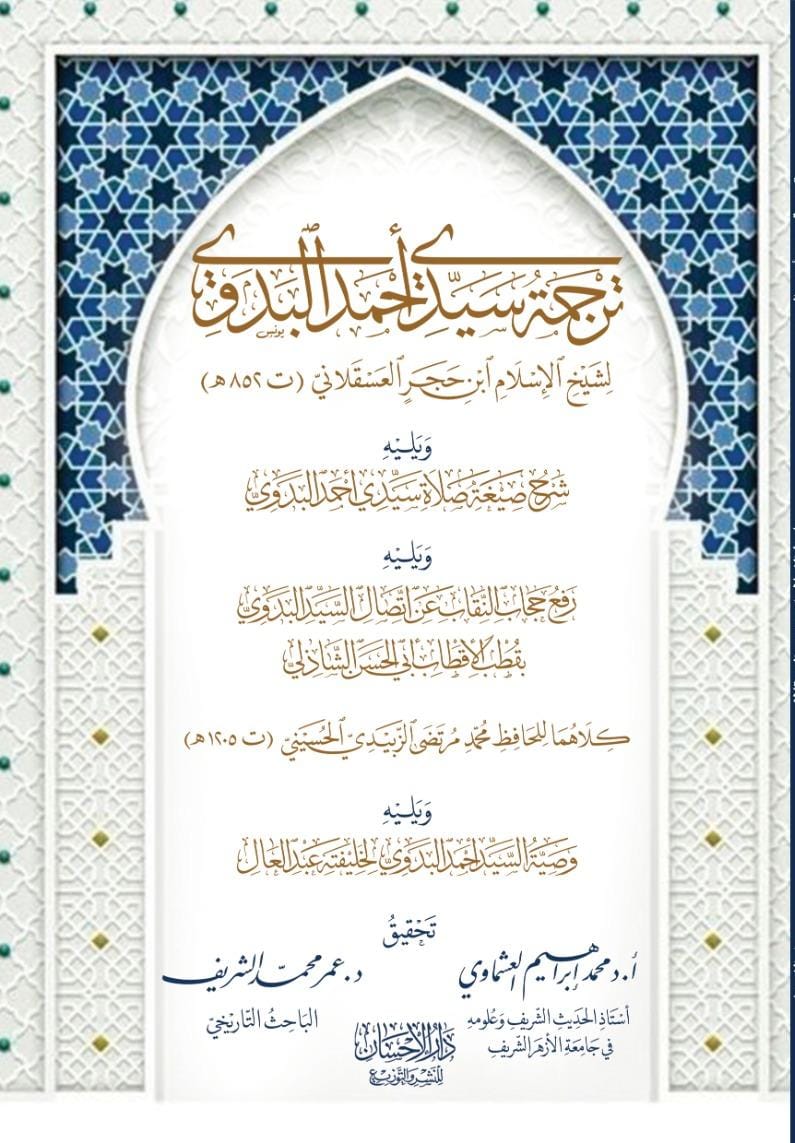 تَرْجَمَةُ سَيِّدِي أَحْمَدَ ٱلْبَدَوِيِّ
يونس
لِشَيْخِ ٱلْإِسْلَامِ ٱبْنِ حَجَرٍ ٱلْعَسْقَلَانِيِّ (ت ٨٥٢ هـ)
وَيَلِيْهِ
شَرْحُ صِيْغَةِ صَلَاةِ سَيِّدِي أَحْمَدَ الْبَدَوِيِّ
وَيَلِيْهِ
رَفْعُ حِجَابِ النِّقَابِ عَنِ اتِّصَالِ السَّيِّدِ الْبَدَوِيِّ
بِقُطْبِ الْأَقْطَابِ أَبِي الْحَسَنِ الشَّاذِلِيِّ
كِلَاهُمَا لِلْحَافِظِ مُحَمَّدِ مُرْتَضَى ٱلزَّبِيدِيِّ ٱلْحُسَيْنِيِّ (ت ١٢٠٥ هـ)
وَيَلِيْهِ
وَصِيَّةُ السَّيِّدِ أَحْمَدَ الْبَدَوِيِّ لِخَلِيْفَتِهِ عَبْدِ الْعَالِ
تَحْقِيقُ
أ.د محمد إبراهيم العشماوي
أُسْتَاذِ الْحَدِيْثِ الشَّرِيفِ وَعُلُومِهِ
فِي جَامِعَةِ الْأَزْهَرِ الشَّرِيفِ
د. عمر محمد الشريف
الْبَاحِثُ التَّارِيْخِيّ
دَارُ الْإِحْسَانِ
لِلنَّشْرِ وَالتَّوْزِيْعِ